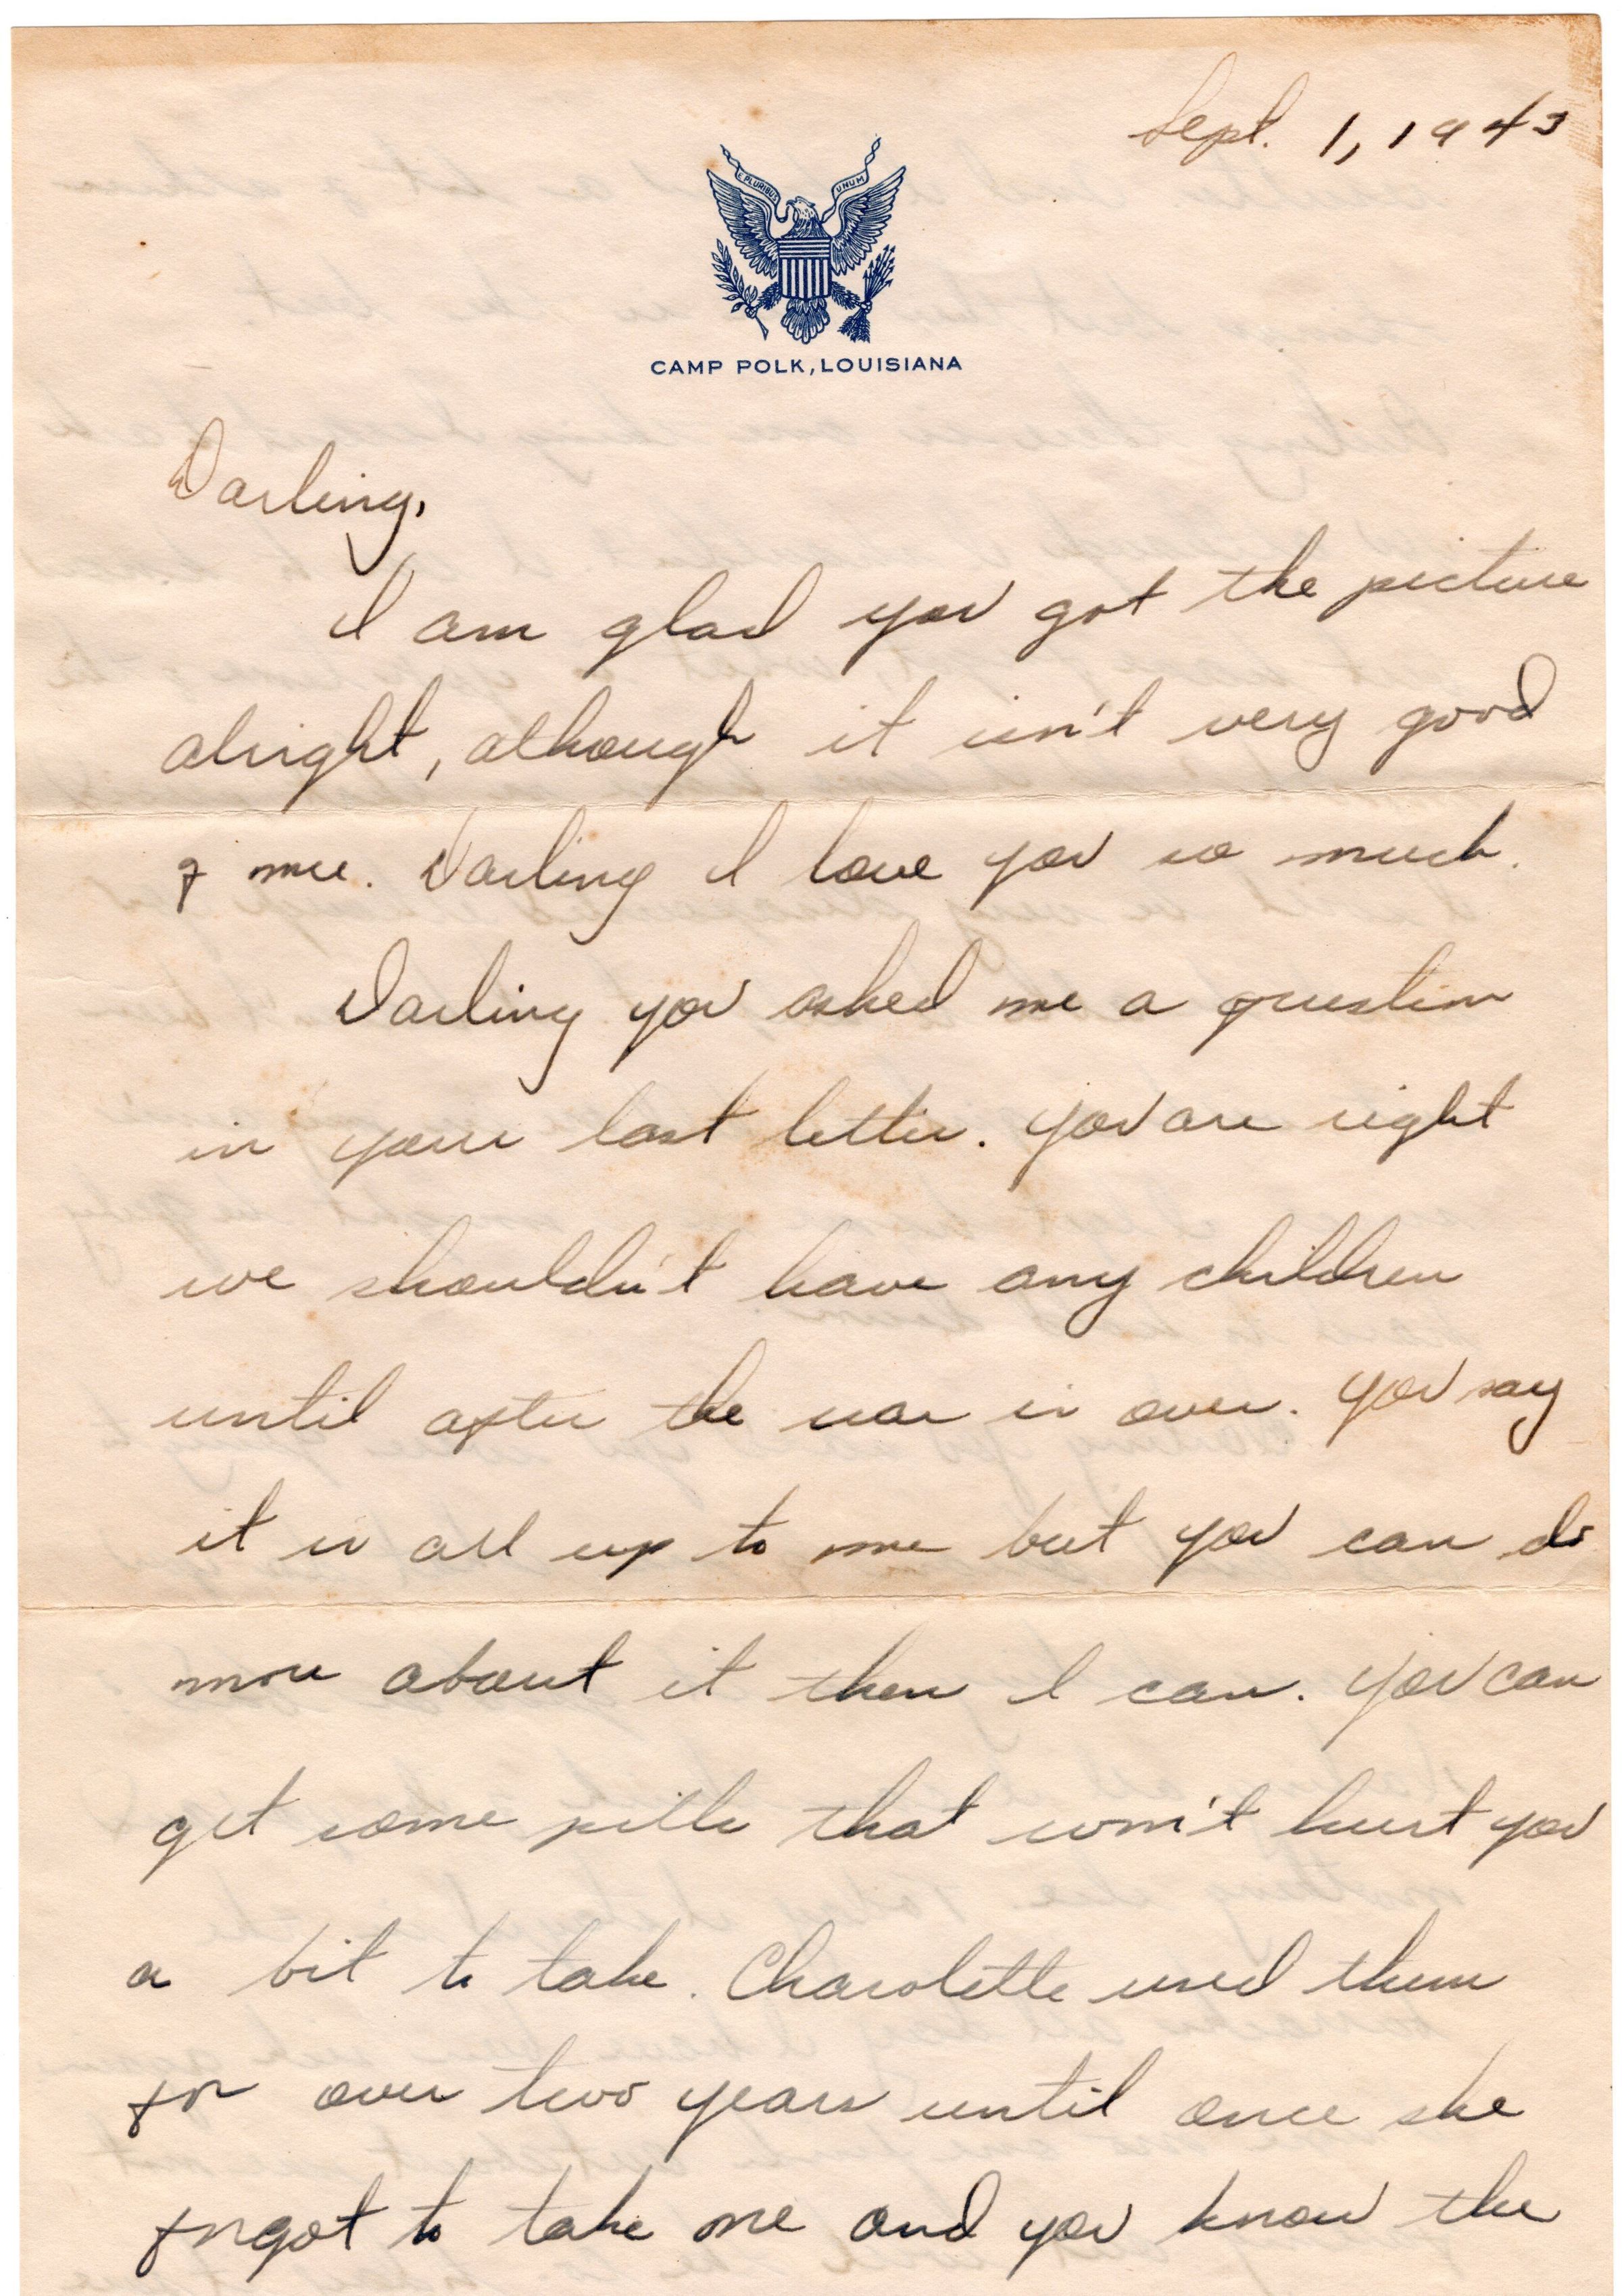 Sept. 1, 1943
E PLURIBUS UNUM
CAMP POLK, LOUISIANA
Darling,
I am glad you got the picture
alright, although it isn't very good
of me. Darling I love you so much.
Darling you asked me a question
in your last letter. You are right
we shouldn't have any children
until after the war is over. You say
it is all up to me but you can do
more about it then I can. You can
get some pills that won't hurt you
a bit to take. Charolette used them
for over two years until once she
forgot to take one and you know the